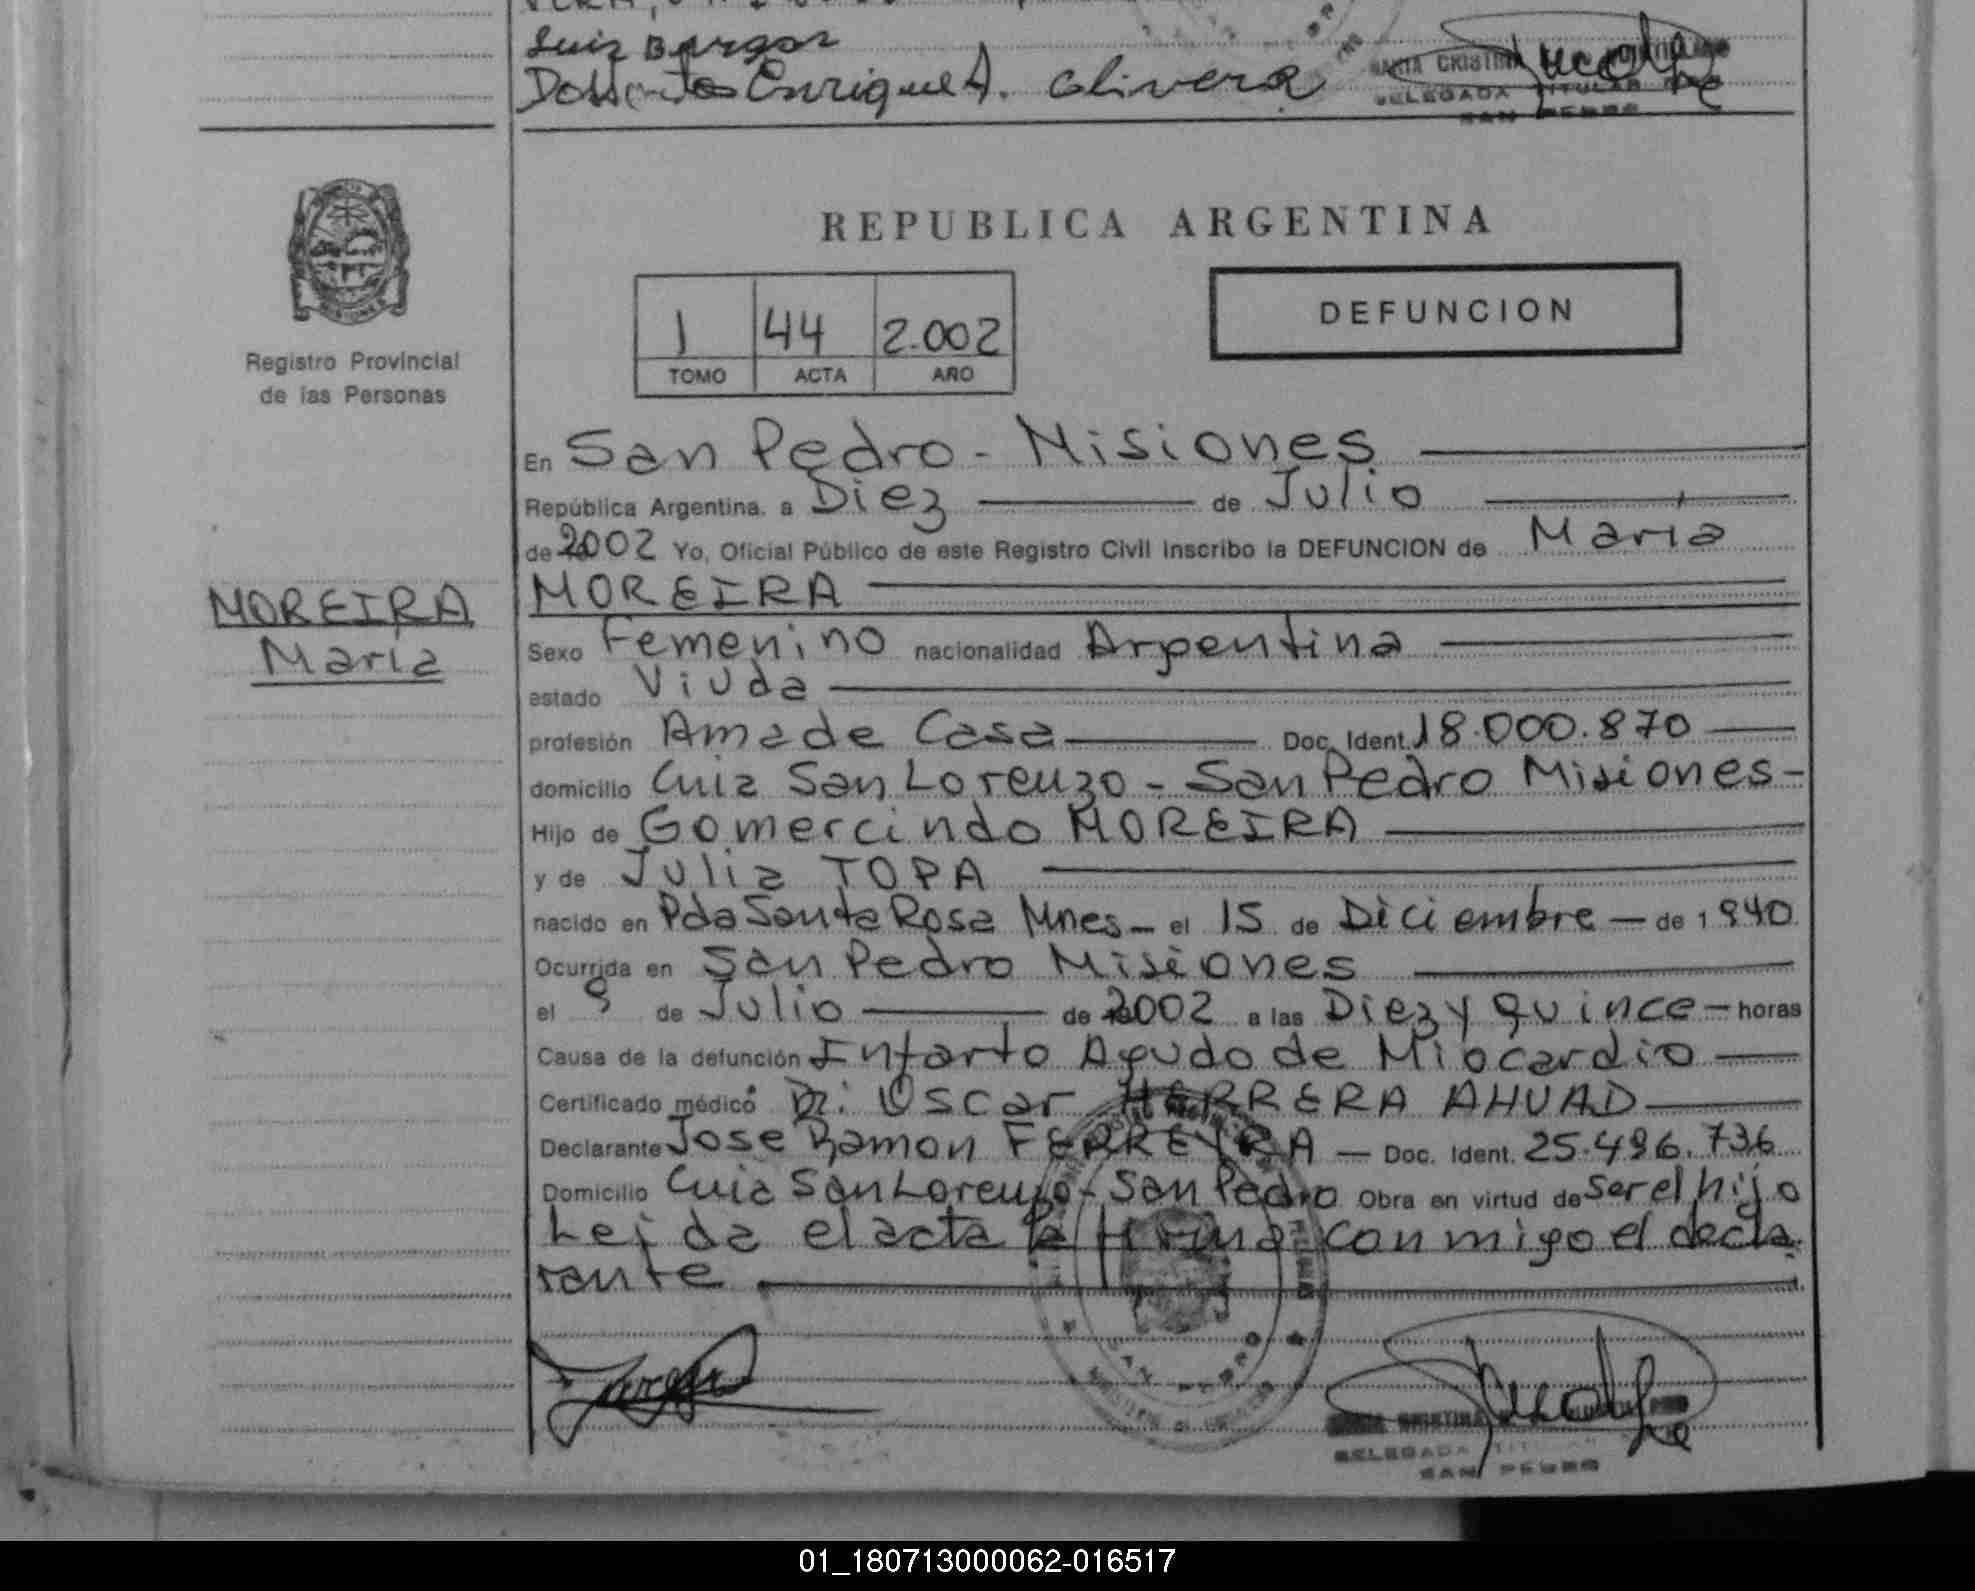 Luis Bargas
Enrique A. Olivera
MARIA CRISTINA
DELEGADA TITULAR
SAN PEDRO
REPUBLICA ARGENTINA
MISIONES
Registro Provincial
de las Personas
1 44 2.002
TOMO ACTA AÑO
DEFUNCION
En San Pedro - Misiones
República Argentina. a Diez de Julio
de 2002 Yo, Oficial Público de este Registro Civil Inscribo la DEFUNCION de Maria
MOREIRA
MOREIRA
Maria
Sexo Femenino nacionalidad Argentina
estado Viuda
profesión Ama de Casa Doc. Ident. 18.000.870
domicilio Cuia San Lorenzo - San Pedro Misiones -
Hijo de Gomercindo MOREIRA
y de Julia TOPA
nacido en Pda Santa Rosa Mnes - el 15 de Diciembre - de 1940
Ocurrida en San Pedro Misiones
el 9 de Julio de 2002 a las Diez y quince - horas
Causa de la defunción Infarto Agudo de Miocardio
Certificado médico Dr. Oscar HERRERA AHUAD
Declarante Jose Ramon FERREYRA - Doc. Ident. 25.496.736
Domicilio Cuia San Lorenzo - San Pedro Obra en virtud de Ser el hijo
Leida el acta la firma conmigo el decla
rante
SAN PEDRO
MARIA CRISTINA
DELEGADA TITULAR
SAN PEDRO
01_180713000062-016517